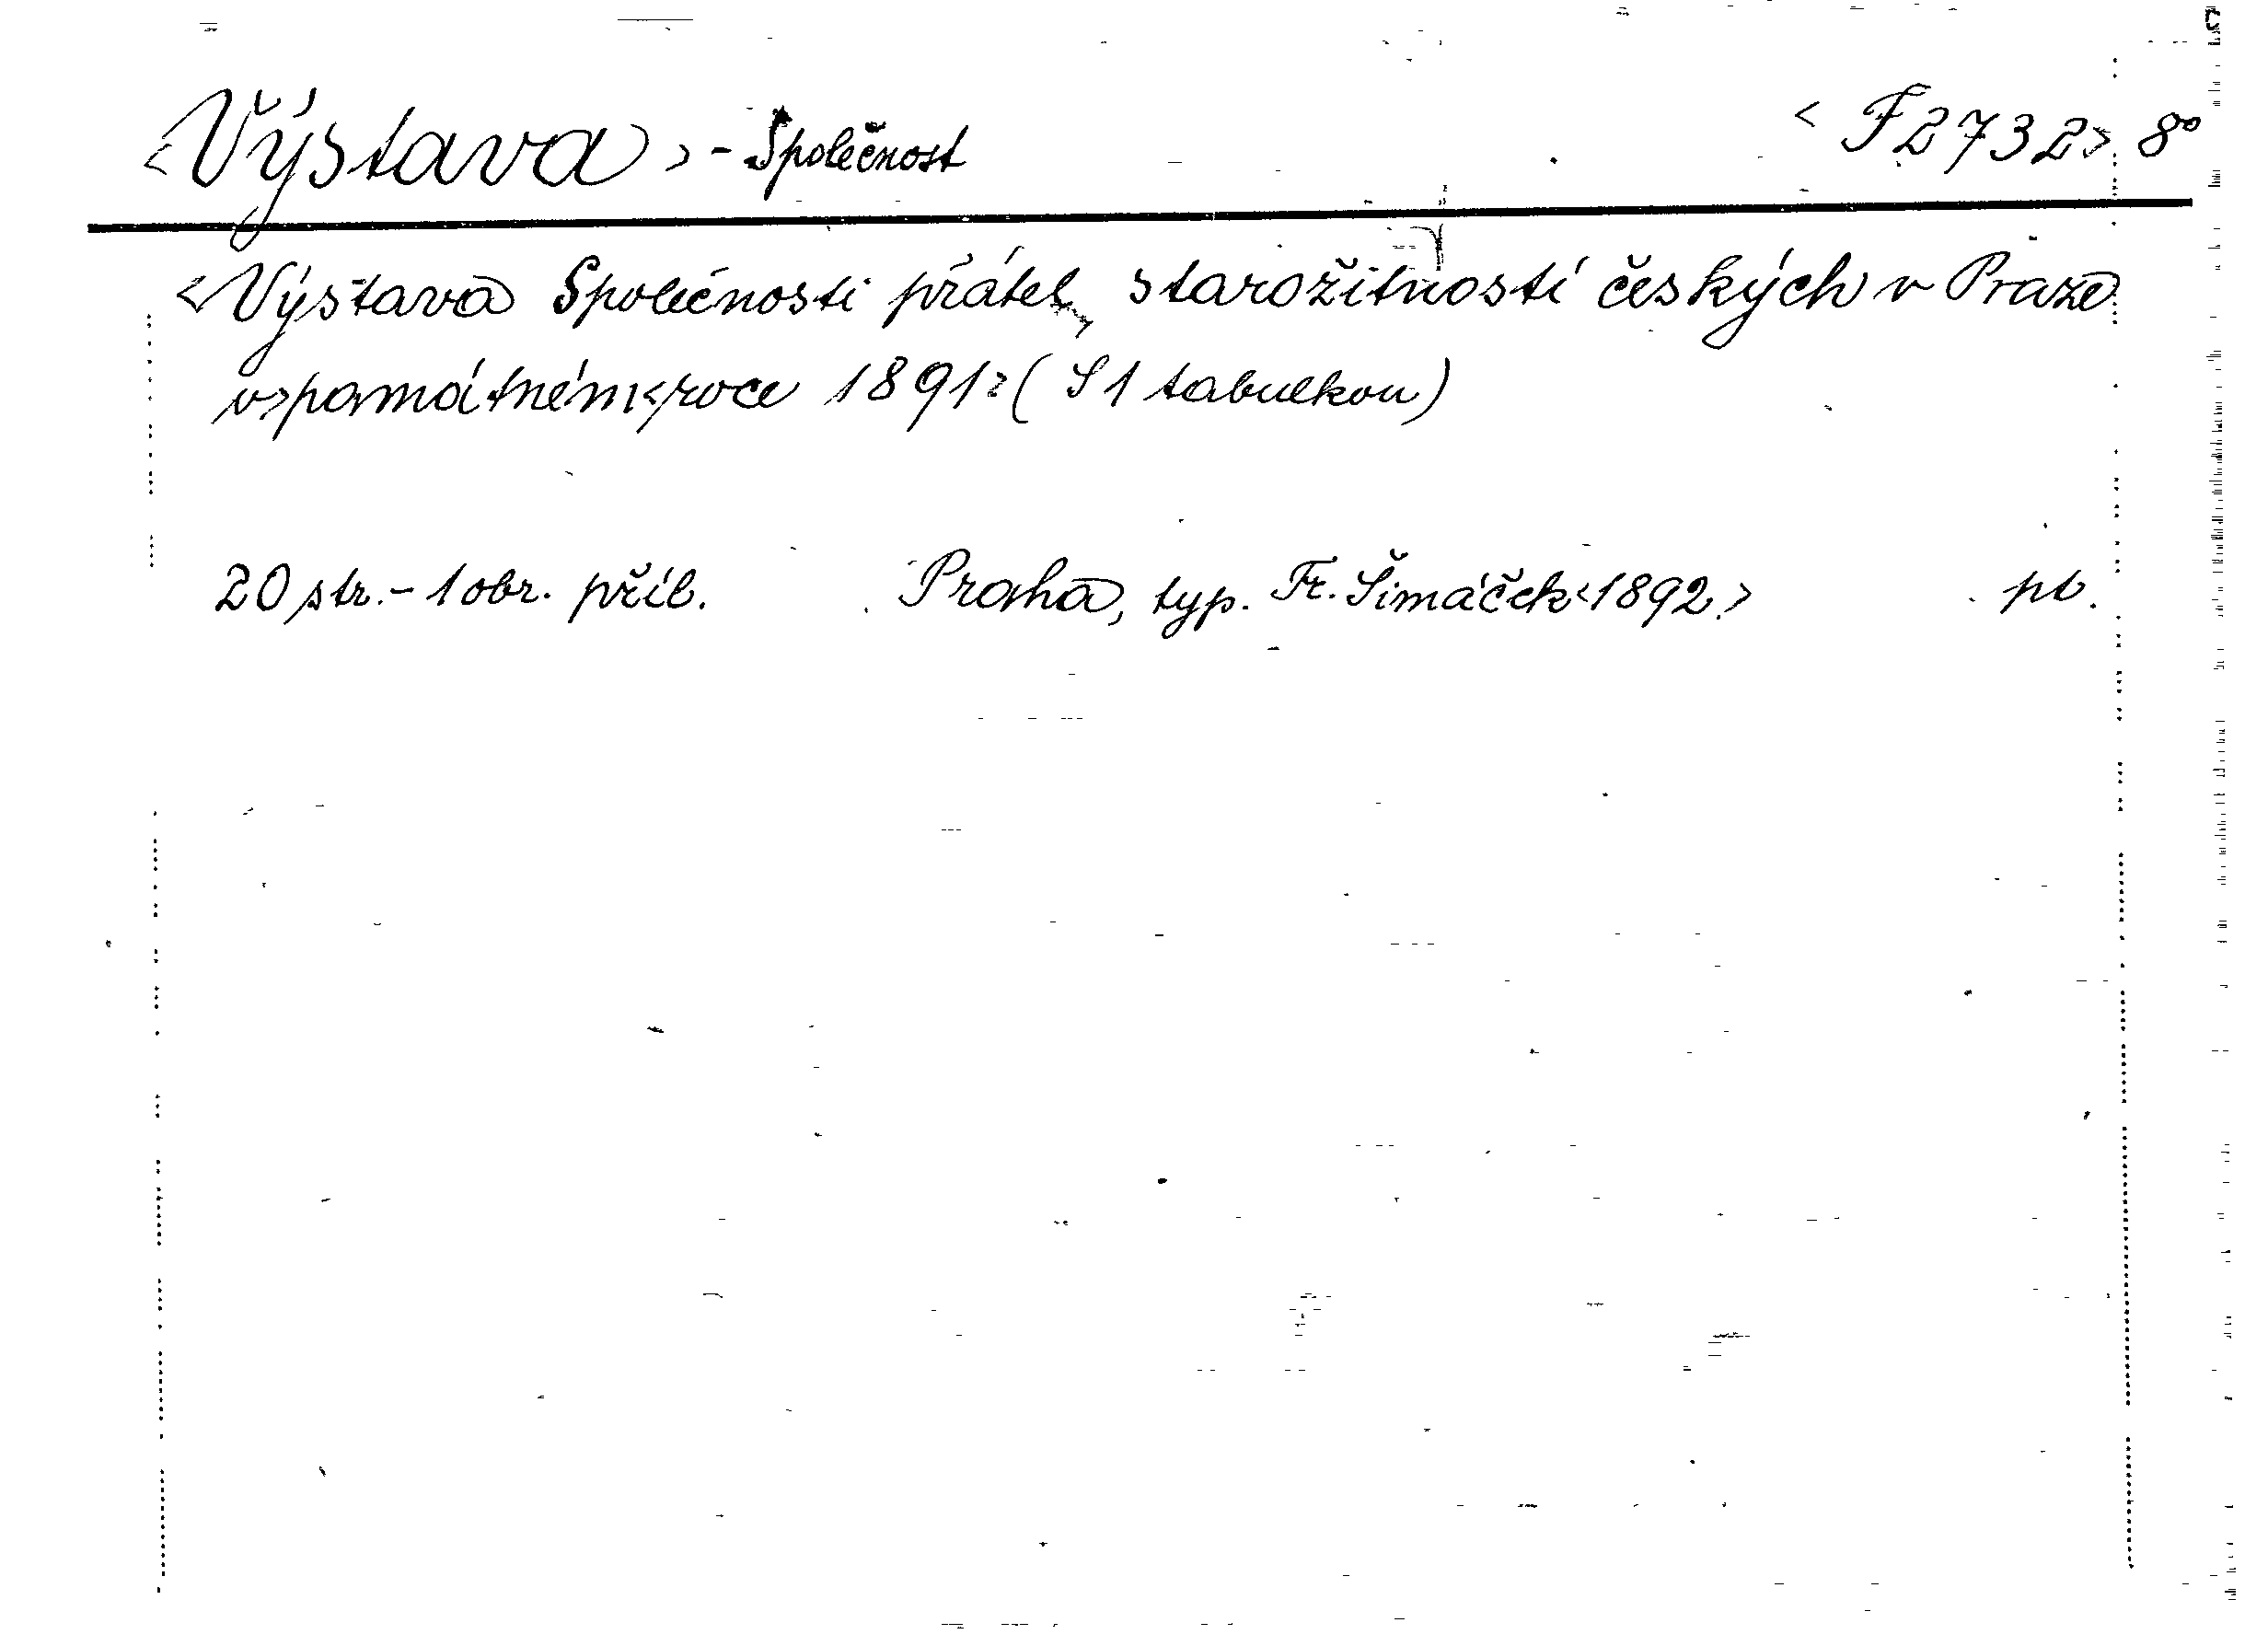 <Výstava> - Společnost <F 2732> 8°
<Výstava Společnosti přátel starožitností českých v Praze
v>památném<roce 1891>(S 1 tabulkou)
20 str. - 1 obr. příl. Praha, typ. Fr. Šimáček<1892.> pb.